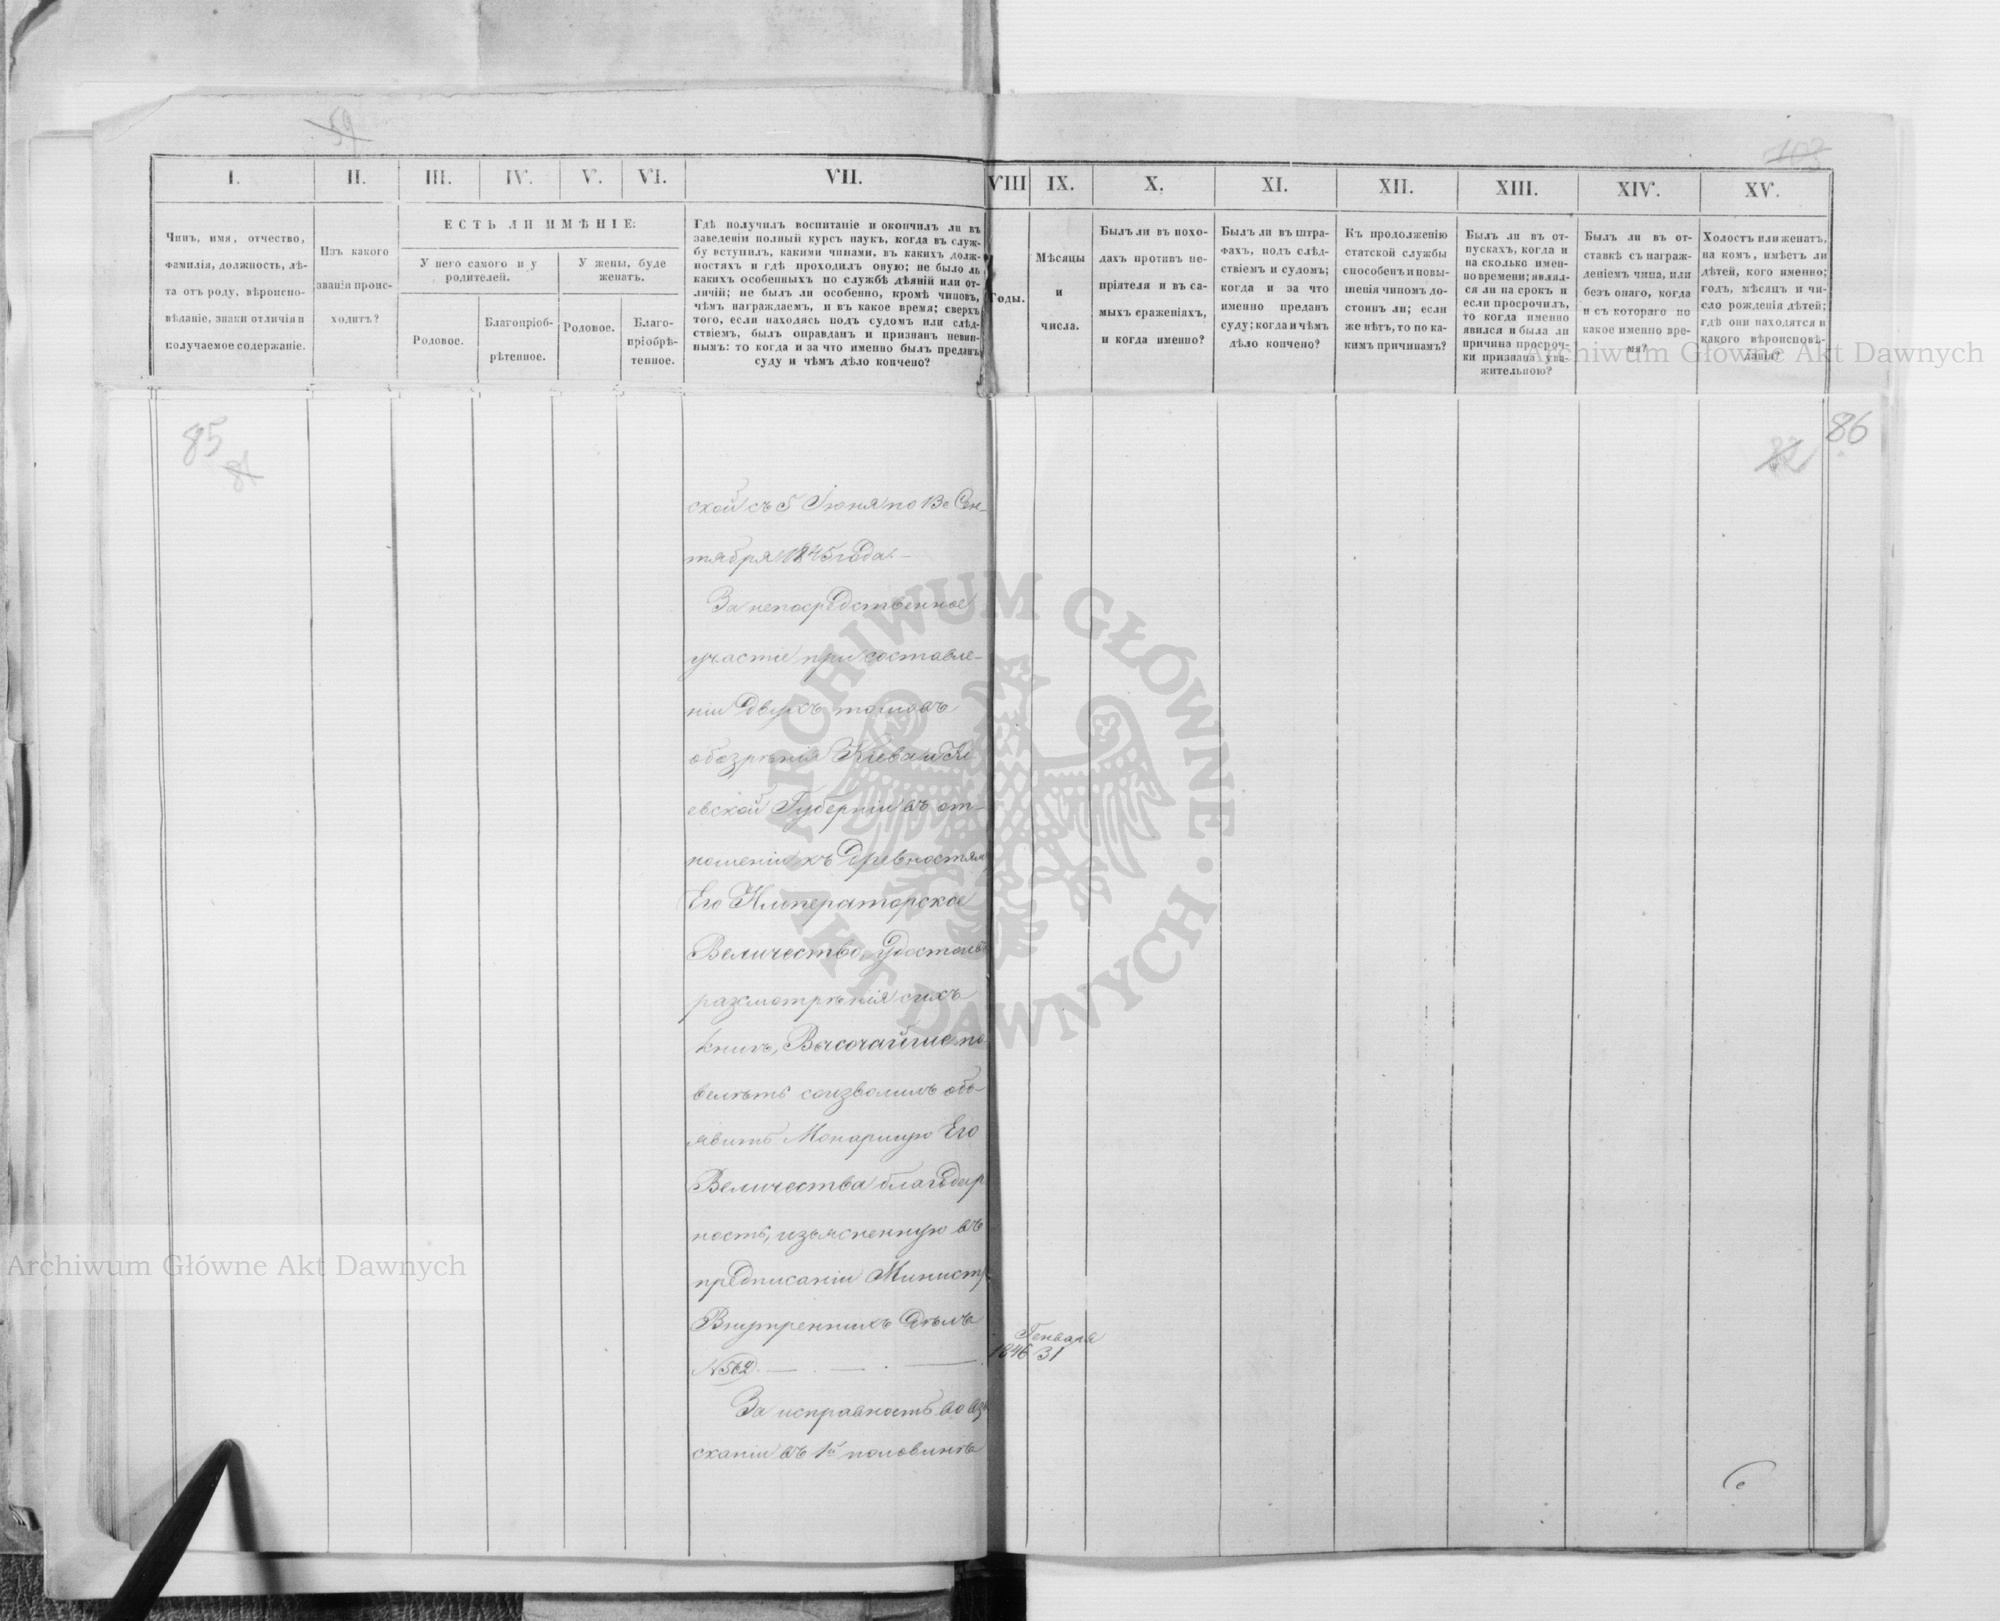 59
103
I.
II.
III.
IV.
V.
VI.
VII.
VIII
IX.
X.
XI.
XII.
XIII.
XIV.
XV.
Чинъ, имя, отчество,
фамилія, должность, лѣ-
та отъ роду, вѣроиспо-
вѣданіе, знаки отличія и
получаемое содержаніе.
Изъ какого
званія проис-
ходитъ?
ЕСТЬ ЛИ ИМѢНІЕ:
У него самого и у
родителей.
У жены, буде
женатъ.
Родовое.
Благопріоб-
рѣтенное.
Родовое.
Благо-
пріобрѣ-
тенное.
Гдѣ получилъ воспитаніе и окончилъ ли въ
заведеніи полный курсъ наукъ, когда въ служ-
бу вступилъ, какими чинами, въ какихъ долж-
ностяхъ и гдѣ проходилъ оную; не было ль
какихъ особенныхъ по службѣ дѣяній или от-
личій; не былъ ли особенно, кромѣ чиновъ,
чѣмъ награждаемъ, и въ какое время; сверхъ
того, если находясь подъ судомъ или слѣд-
ствіемъ, былъ оправданъ и признанъ невин-
нымъ: то когда и за что именно былъ преданъ
суду и чѣмъ дѣло кончено?
Годы.
Мѣсяцы
и
числа.
Былъ ли въ похо-
дахъ противъ не-
пріятеля и въ са-
мыхъ сраженіяхъ,
и когда именно?
Былъ ли въ штра-
фахъ, подъ слѣд-
ствіемъ и судомъ;
когда и за что
именно преданъ
суду; когда и чѣмъ
дѣло кончено?
Къ продолженію
статской службы
способенъ и повы-
шенія чиномъ до-
стоинъ ли; если
же нѣтъ, то по ка-
кимъ причинамъ?
Былъ ли въ от-
пускахъ, когда и
на сколько имен-
но времени; являл-
ся ли на срокъ и
если просрочилъ,
то когда именно
явился и была ли
причина просроч-
ки признана ува-
жительною?
Былъ ли въ от-
ставкѣ съ награж-
деніемъ чина, или
безъ онаго, когда
и съ котораго по
какое именно вре-
мя?
Холостъ или женатъ,
на комъ, имѣетъ ли
дѣтей, кого именно;
годъ, мѣсяцъ и чи-
сло рожденія дѣтей;
гдѣ они находятся и
какого вѣроисповѣ-
данія?
Archiwum Główne Akt Dawnych
85
81
82
86
ской съ 5 Іюня по 13е Сен-
тября 1845 года.
За непосредственное
участіе при составле-
ніи двухъ томовъ
обозрѣнія Кіева и Кі
евской Губерніи въ от-
ношеніи къ древностям
Его Императорское
Величество, удостоивъ
разсмотрѣнія сихъ
книгъ, Высочайше по
велѣть соизволилъ объ-
явить Монаршую Его
Величества благодар
ность, изъясненную въ
предписаніи Министр
Внутреннихъ Дѣлъ
№ 562.
1846
Генваря
31
За исправность во вз
сканіи въ 1й половинѣ
ARCHIWUM GŁÓWNE · AKT DAWNYCH ·
Archiwum Główne Akt Dawnych